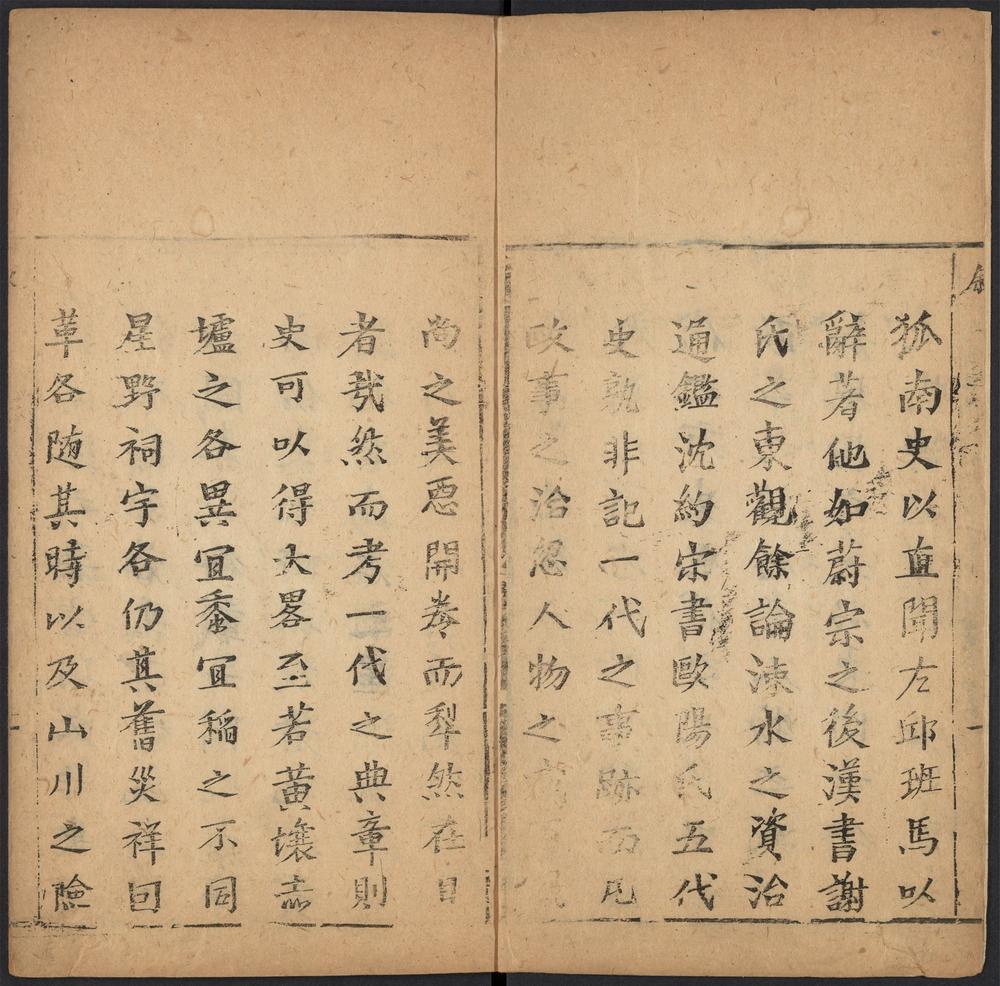 狐南史以直聞左邱班馬以
辭著他如蔚宗之後漢書謝
氏之東觀餘論涑水之資治
通鑑沈約宋書歐陽氏五代
史孰非記一代之事跡而凡
政事之治忽人物之
尚之美惡開卷而犁然在目
者㦲然而考一代之典章則
史可以得大畧至若黃壤赤
壚之各異宜黍宜稲之不同
星野祠宇各仍其舊災祥回
革各随其時以及山川之險
一